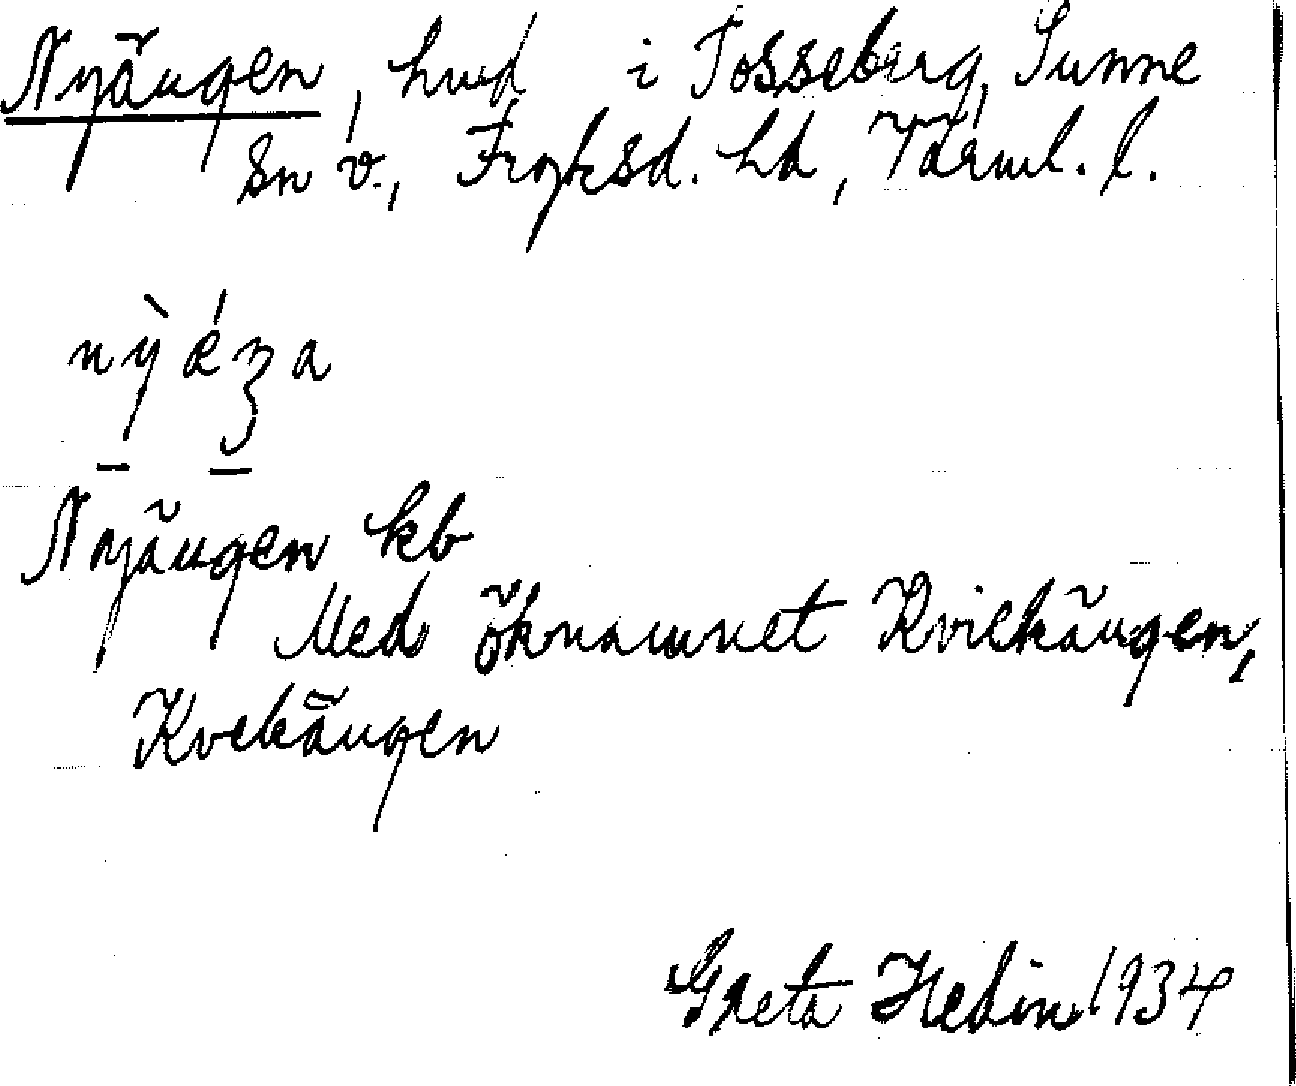 Nyängen, hmd i Tosseberg, Sunne
sn v., Fryksd. hd, Värml. l.
nỳǽʒa
Nyängen kb
Med öknamnet Kvickängen,
Kvekängen
Greta Hedin 1934